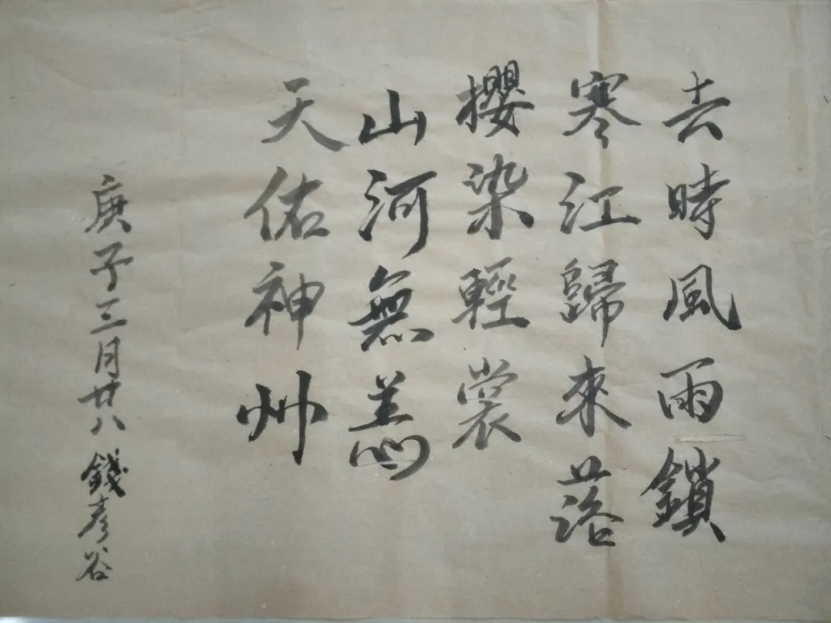 去時風雨鎖
寒江歸來落
櫻染輕裳
山河無恙
天佑神州
庚子三月廿八 錢彥谷